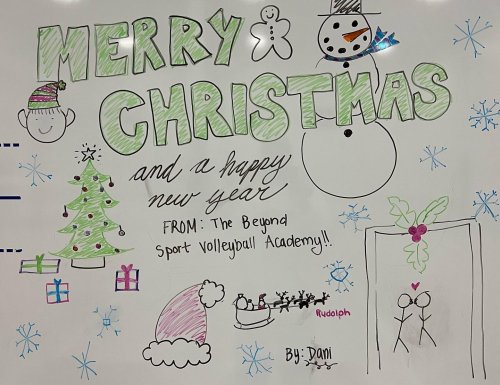 MERRY
CHRISTMAS
and a happy
new year
FROM: The Beyond
Sport Volleyball Academy!!
Rudolph
By: Dani